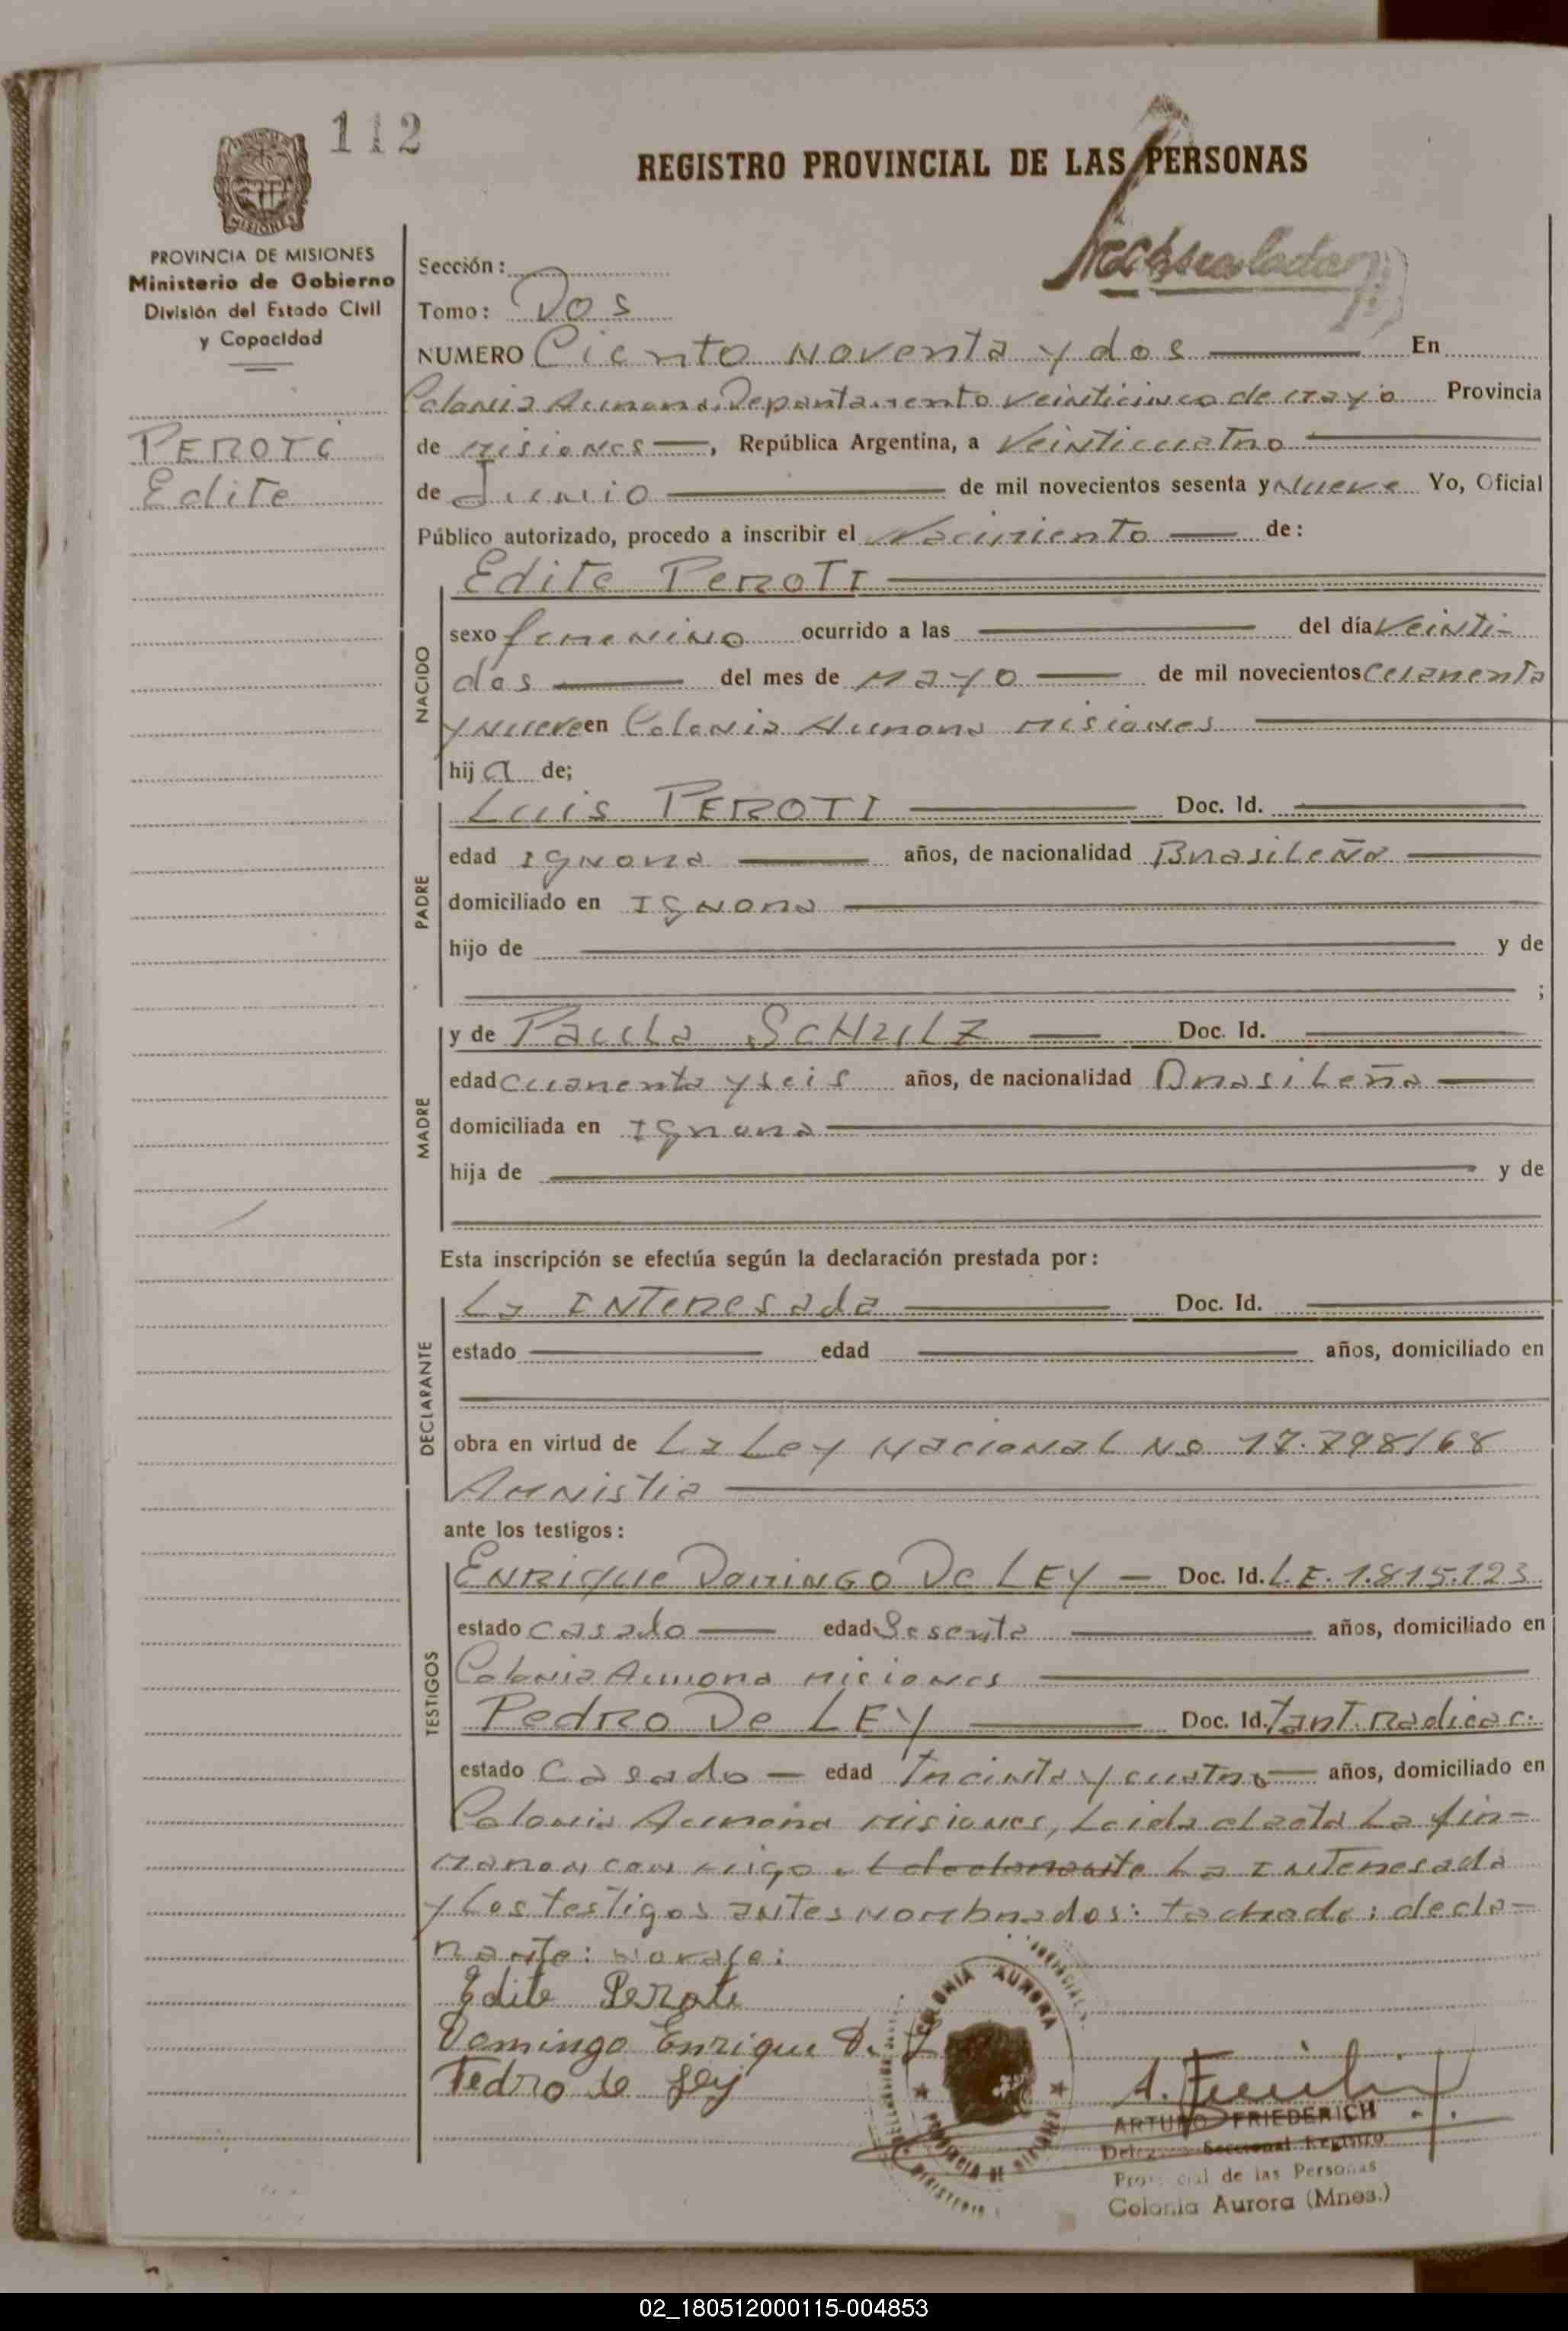 112
REGISTRO PROVINCIAL DE LAS PERSONAS
MISIONES
PROVINCIA DE MISIONES
Ministerio de Gobierno
División del Estado Civil
y Capacidad
PEROTI
Edite
Sección:
Tomo: Dos
NUMERO Ciento noventa y dos En
Colonia Aurora, Departamento Veinticinco de Mayo Provincia
de Misiones, República Argentina, a Veinticuatro
de Junio de mil novecientos sesenta y Nueve Yo, Oficial
Público autorizado, procedo a inscribir el Nacimiento de:
NACIDO
Edite PeroTI
sexo femenino ocurrido a las del día Veinti-
dos del mes de Mayo de mil novecientos cuarenta
y nueve en Colonia Aurora Misiones
hija de;
PADRE
Luis PEROTI Doc. Id.
edad Ignora años, de nacionalidad Brasileña
domiciliado en Ignora
hijo de y de
;
MADRE
y de Paula SCHULZ Doc. Id.
edad cuarenta y seis años, de nacionalidad Brasileña
domiciliada en Ignora
hija de y de
Esta inscripción se efectúa según la declaración prestada por:
DECLARANTE
La Interesada Doc. Id.
estado edad años, domiciliado en
obra en virtud de La Ley Nacional No 17.798/68
Amnistia
ante los testigos:
TESTIGOS
ENRique DomiNGO De LEY Doc. Id. L.E. 1.815.123
estado casado edad Sesenta años, domiciliado en
Colonia Aurora Misiones
Pedro De LEY Doc. Id. Tant. Radicac.
estado Casado edad Treinta y cuatro años, domiciliado en
Colonia Aurora Misiones, Leida el acta La fir-
maron con migo el declarante La Interesada
y Los testigos antes nombrados: tachado: decla-
rante: no vale:
Edite Peroti
Domingo Enrique D. L
Pedro de Ley
COLONIA AURORA
PROVINCIA DE MISIONES
ARTURO FRIEDERICH
Seccional Registro
Provincial de las Personas
Colonia Aurora (Mnes.)
02_180512000115-004853